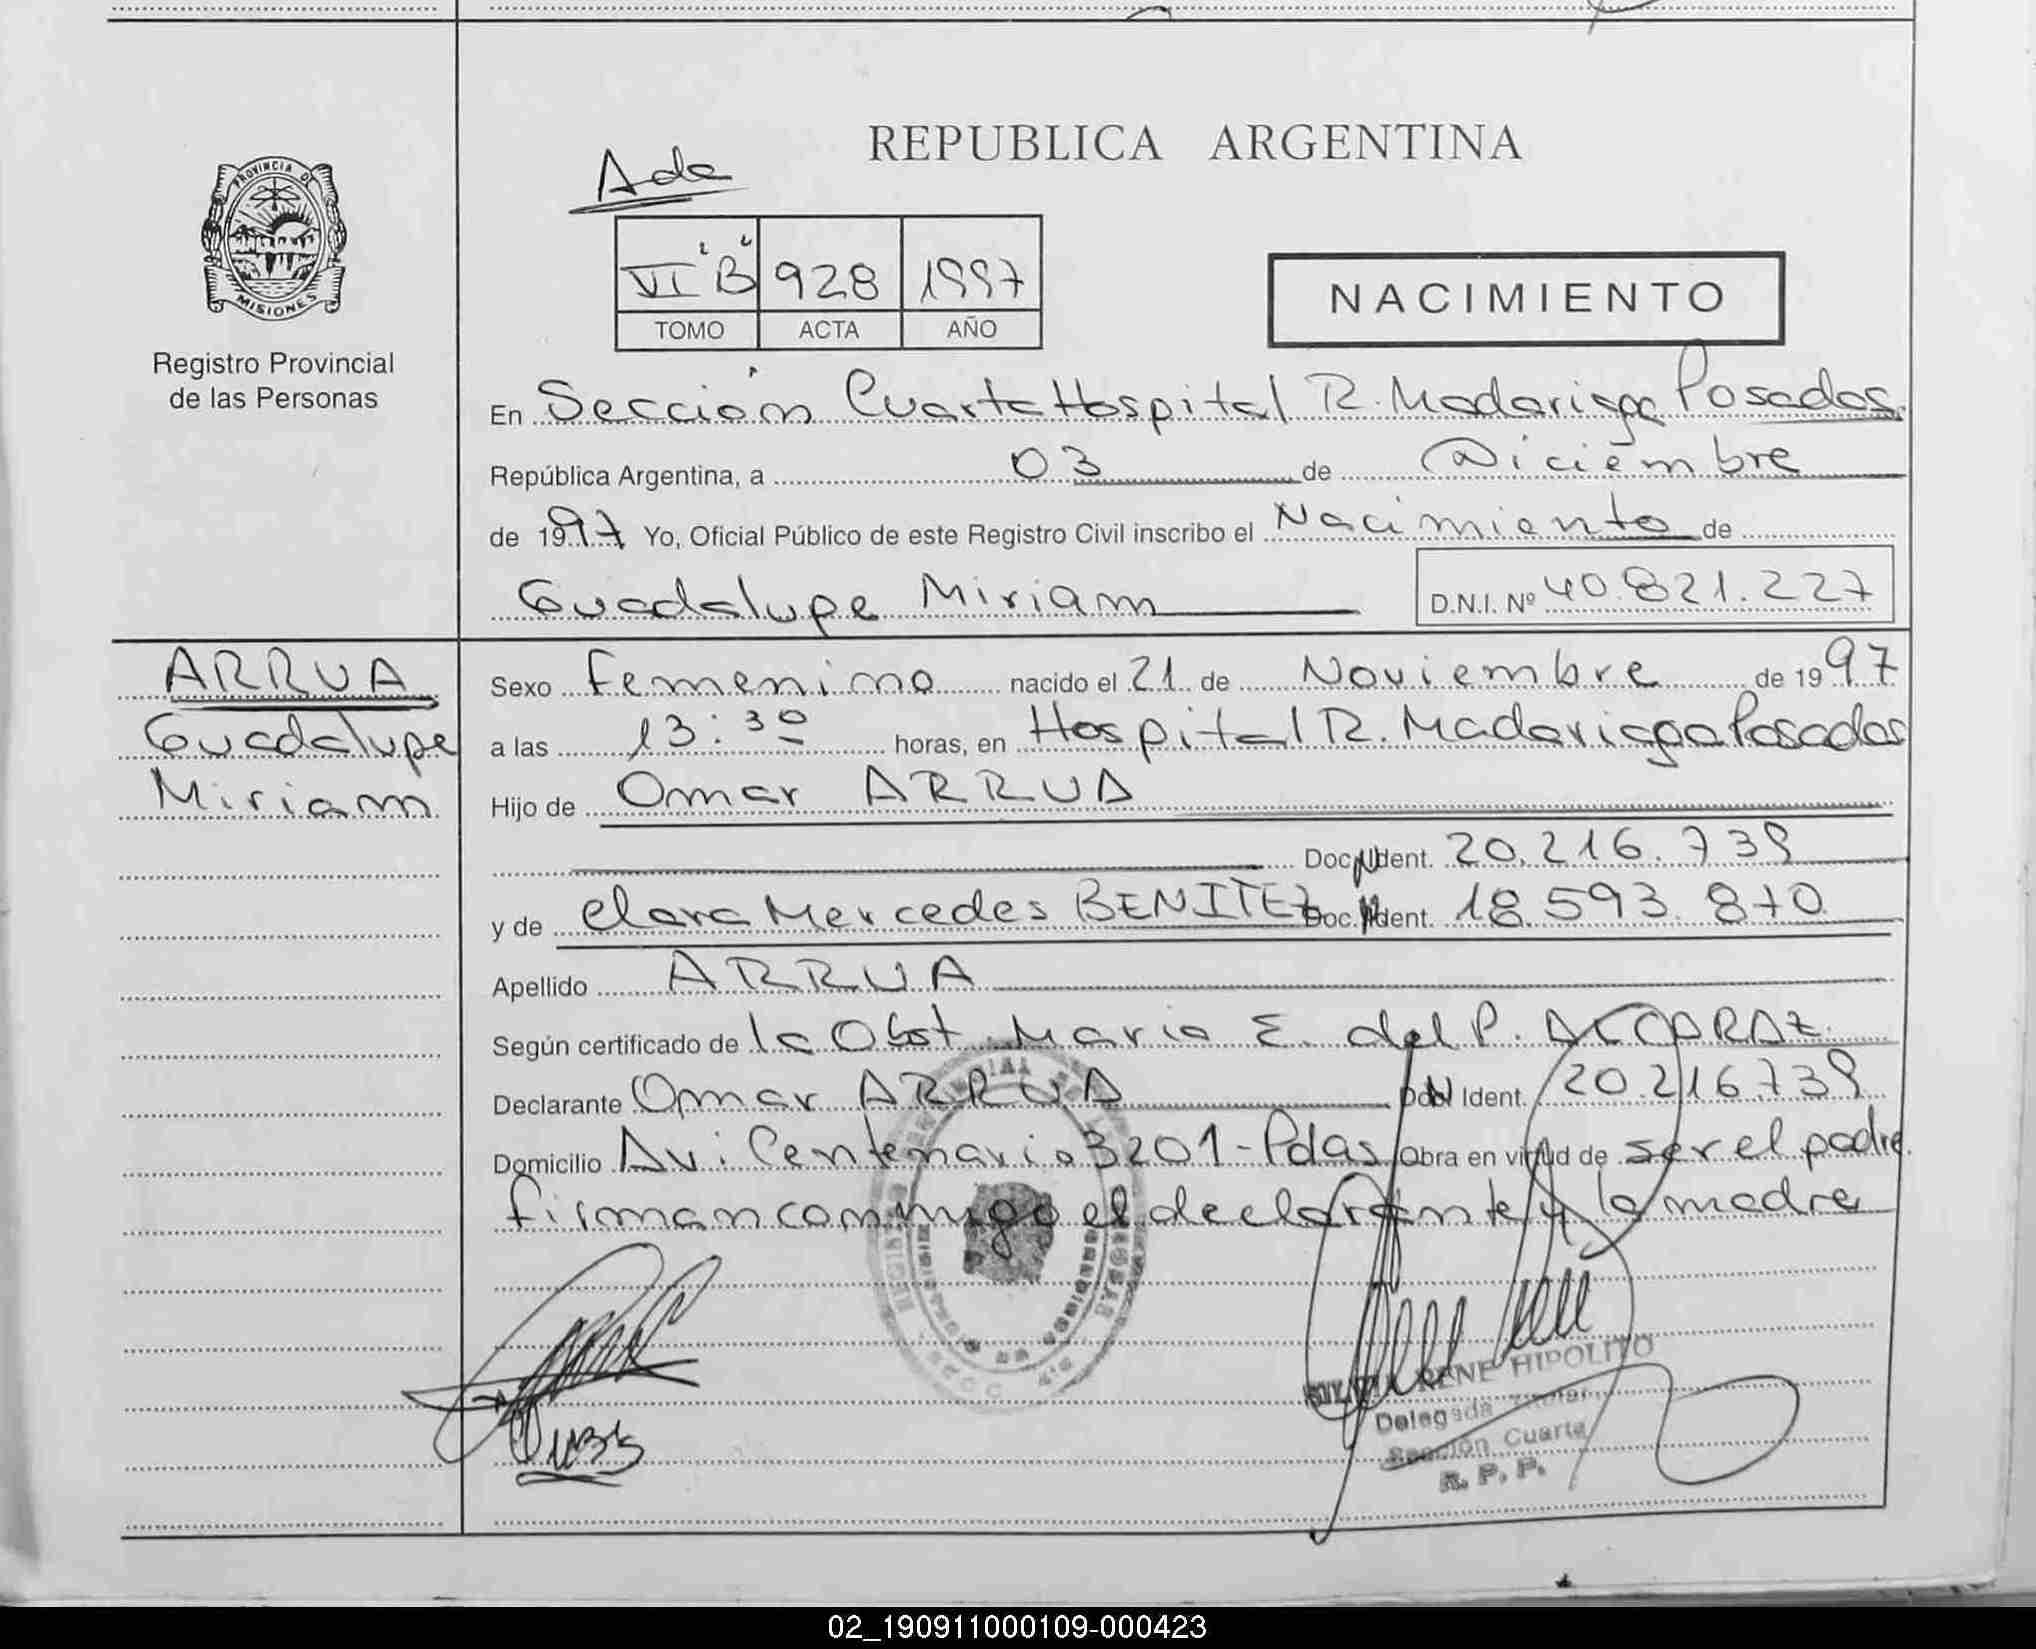 PROVINCIA DE
MISIONES
Registro Provincial
de las Personas
REPUBLICA ARGENTINA
Ada
VI "B" 928 1997
TOMO ACTA AÑO
NACIMIENTO
En Sección Cuarta Hospital R. Madariaga Posadas.
República Argentina, a 03 de Diciembre
de 1997 Yo, Oficial Público de este Registro Civil inscribo el Nacimiento de
Guadalupe Miriam D.N.I. Nº 40.821.227
ARRUA
Guadalupe
Miriam
Sexo Femenino nacido el 21 de Noviembre de 1997
a las 13:30 horas, en Hospital R. Madariaga Posadas
Hijo de Omar ARRUA
Doc. Ident. 20.216.739
y de Clara Mercedes BENITEZ Doc. Ident. 18.593.870
Apellido ARRUA
Según certificado de la Obst. Maria E. del P.
Declarante Omar ARRUA Doc. Ident. 20.216.739
Domicilio Av: Centenario 3201-Pdas Obra en virtud de ser el padre
firman conmigo el declarante y la madre
RENE HIPOLITO
Delegada Titular
Sección Cuarta
R. P. P.
02_190911000109-000423